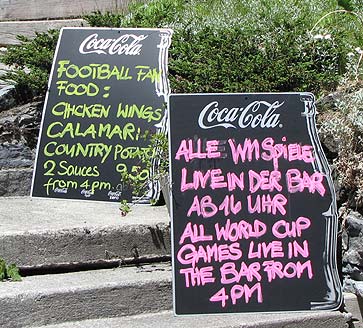 Coca-Cola
FOOTBALL FAN
FOOD:
CHICKEN WINGS
CALAMARI
COUNTRY POTATO
2 SAUCES 9.50
from 4 pm
Coca-Cola
ALLE WM SPIELE
LIVE IN DER BAR
AB 16 UHR
ALL WORLD CUP
GAMES LIVE IN
THE BAR FROM
4 PM